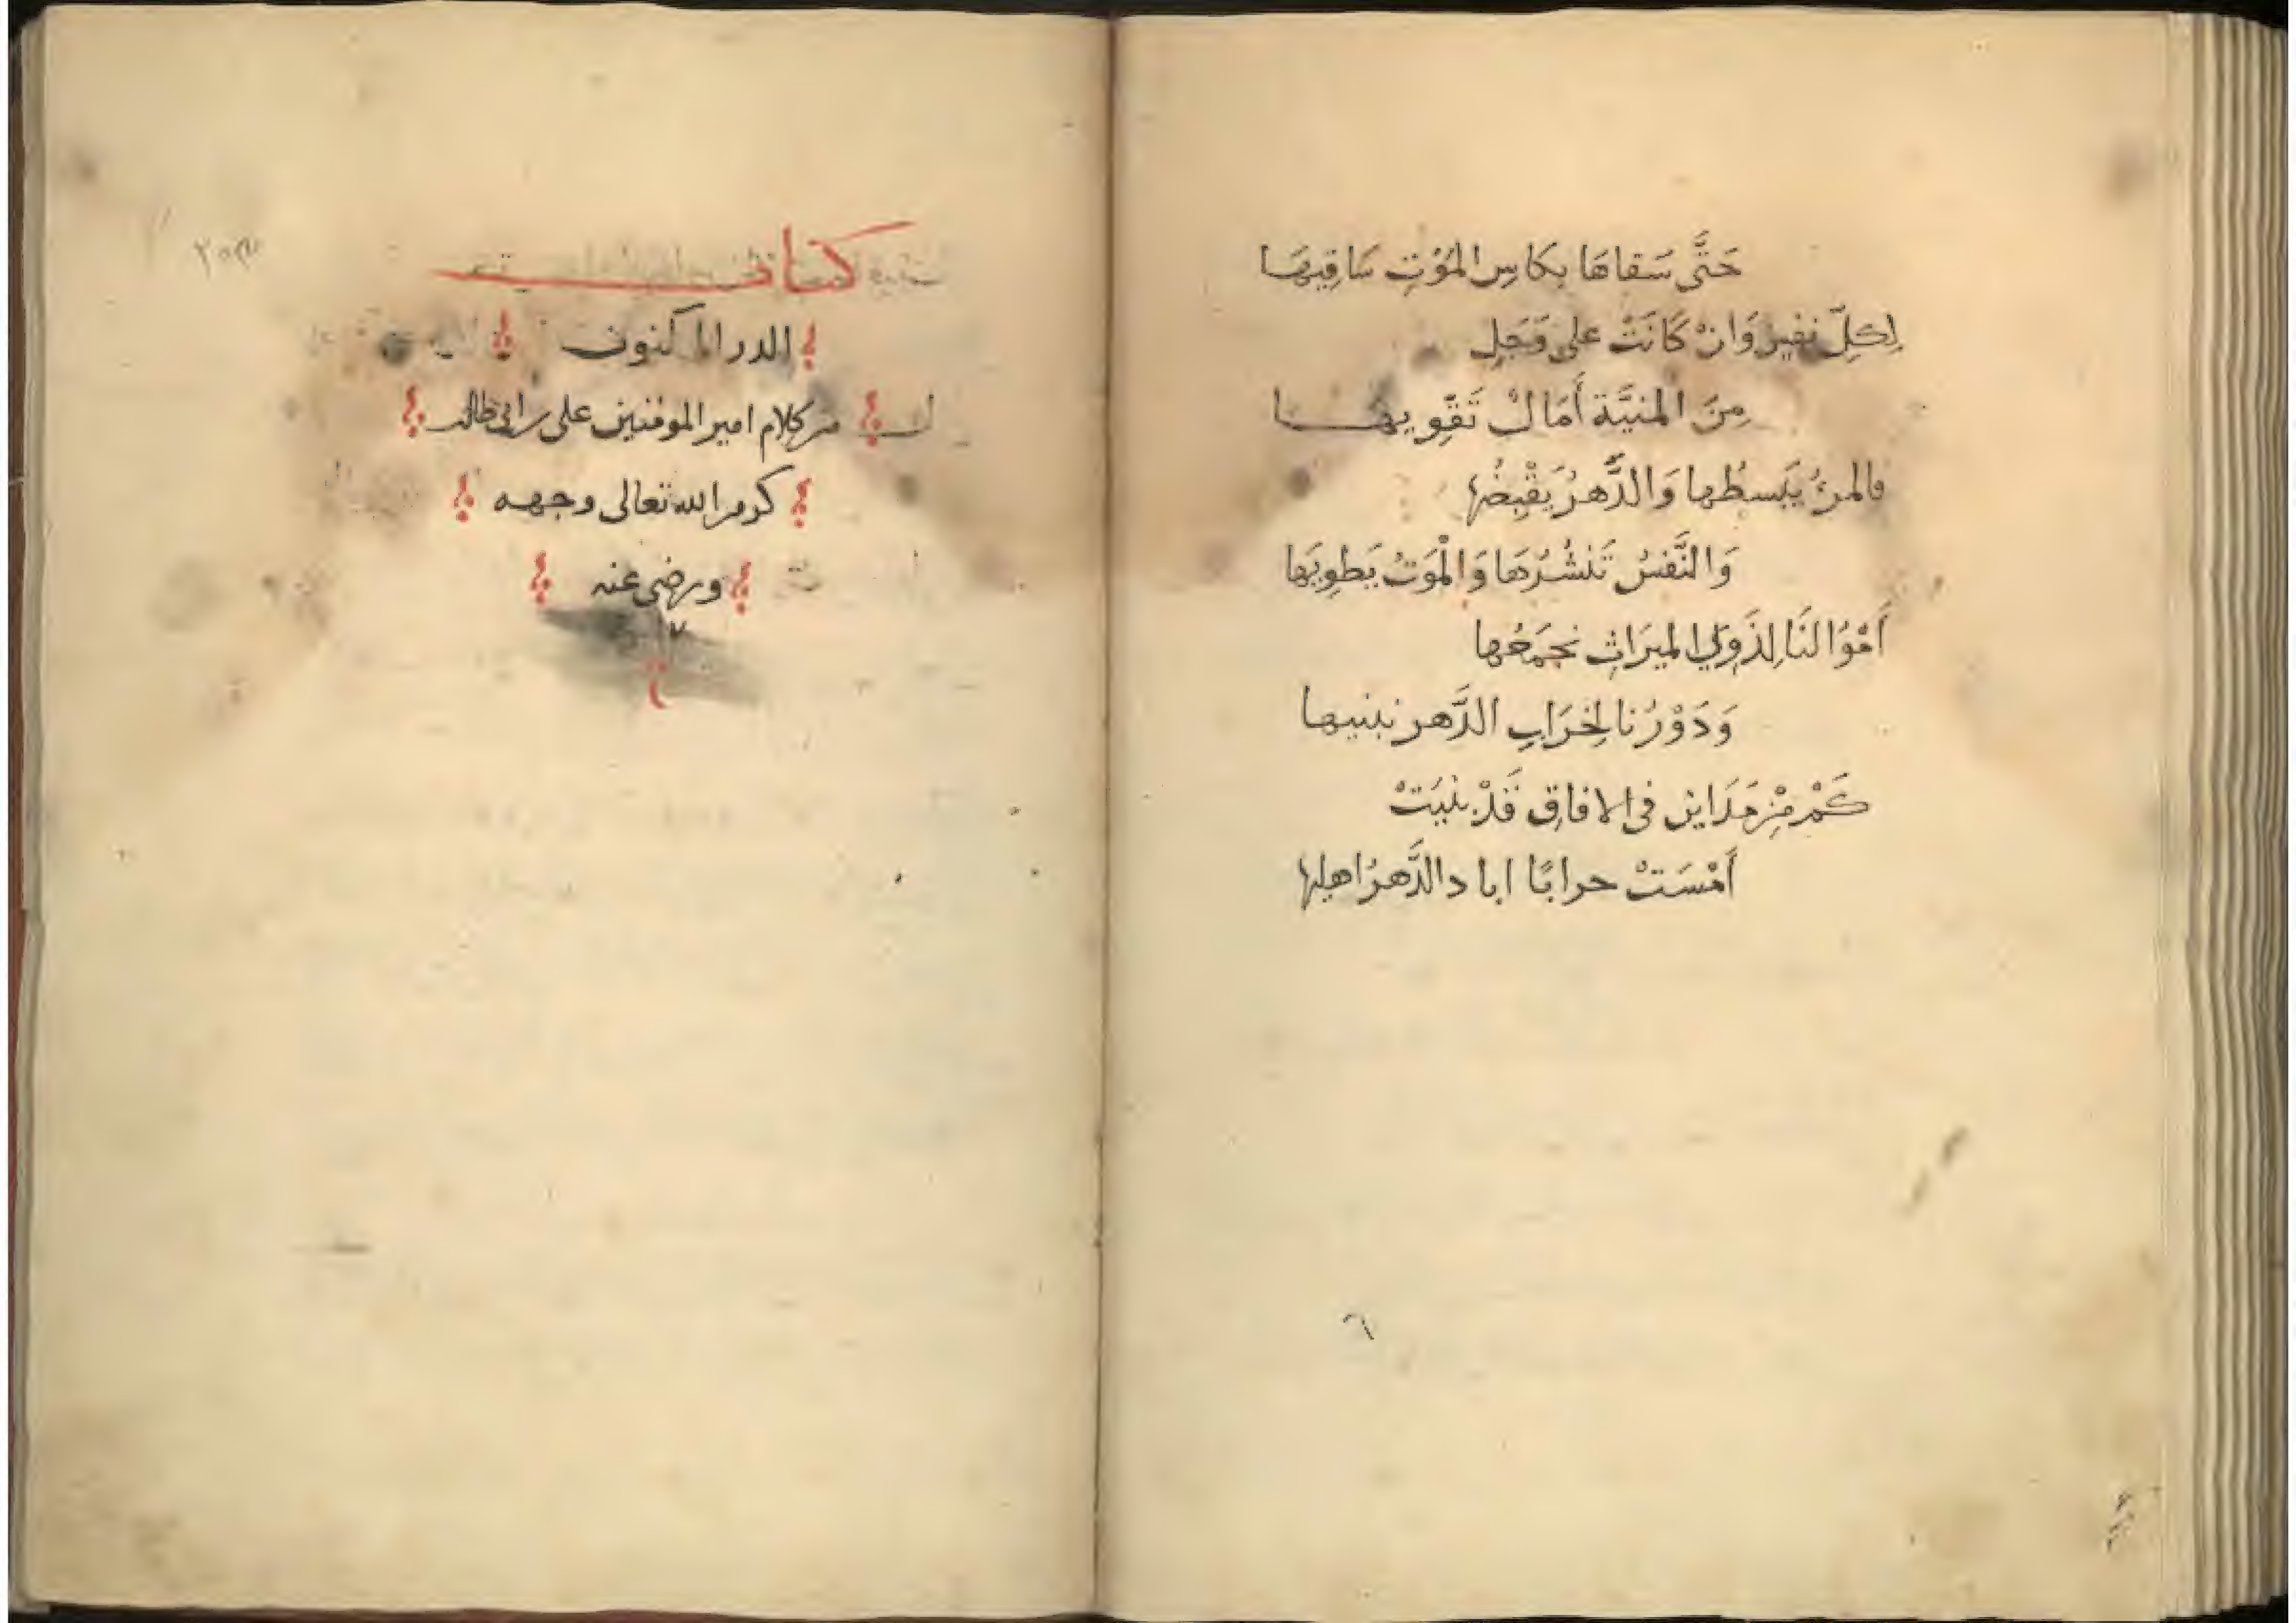 حَتَّى سَقاهَا بِكاسِ المَوْتِ سَاقِيهَا
لِكلِّ نفسٍ وَانْ كَانَتْ على وَجَلٍ
مِنَ المنيَّة أَمَالٌ تَقَوِيهَا
فالمرءُ يَبسطُها وَالدَّهرُ يَقْبِضُها
وَالنَّفسُ تَنشُرُهَا وَالْمَوتُ يَطوِيَها
أَمْوُالنَا لِذَوِي الميَراثِ نجمَعُها
وَدَوْرُنا لِخَرَابِ الدَّهر نبنيها
كَمْ مِنْ مَدَاين فى الافاقِ قَدْ بنيَتْ
أَمْسَتْ حرابًا اباد الدَّهرُ اهلها
٦
كتاب
الدر المكنون
من كلام امير المومنين على بن ابى طالب
كرم الله تعالى وجهه
ورضى عنه